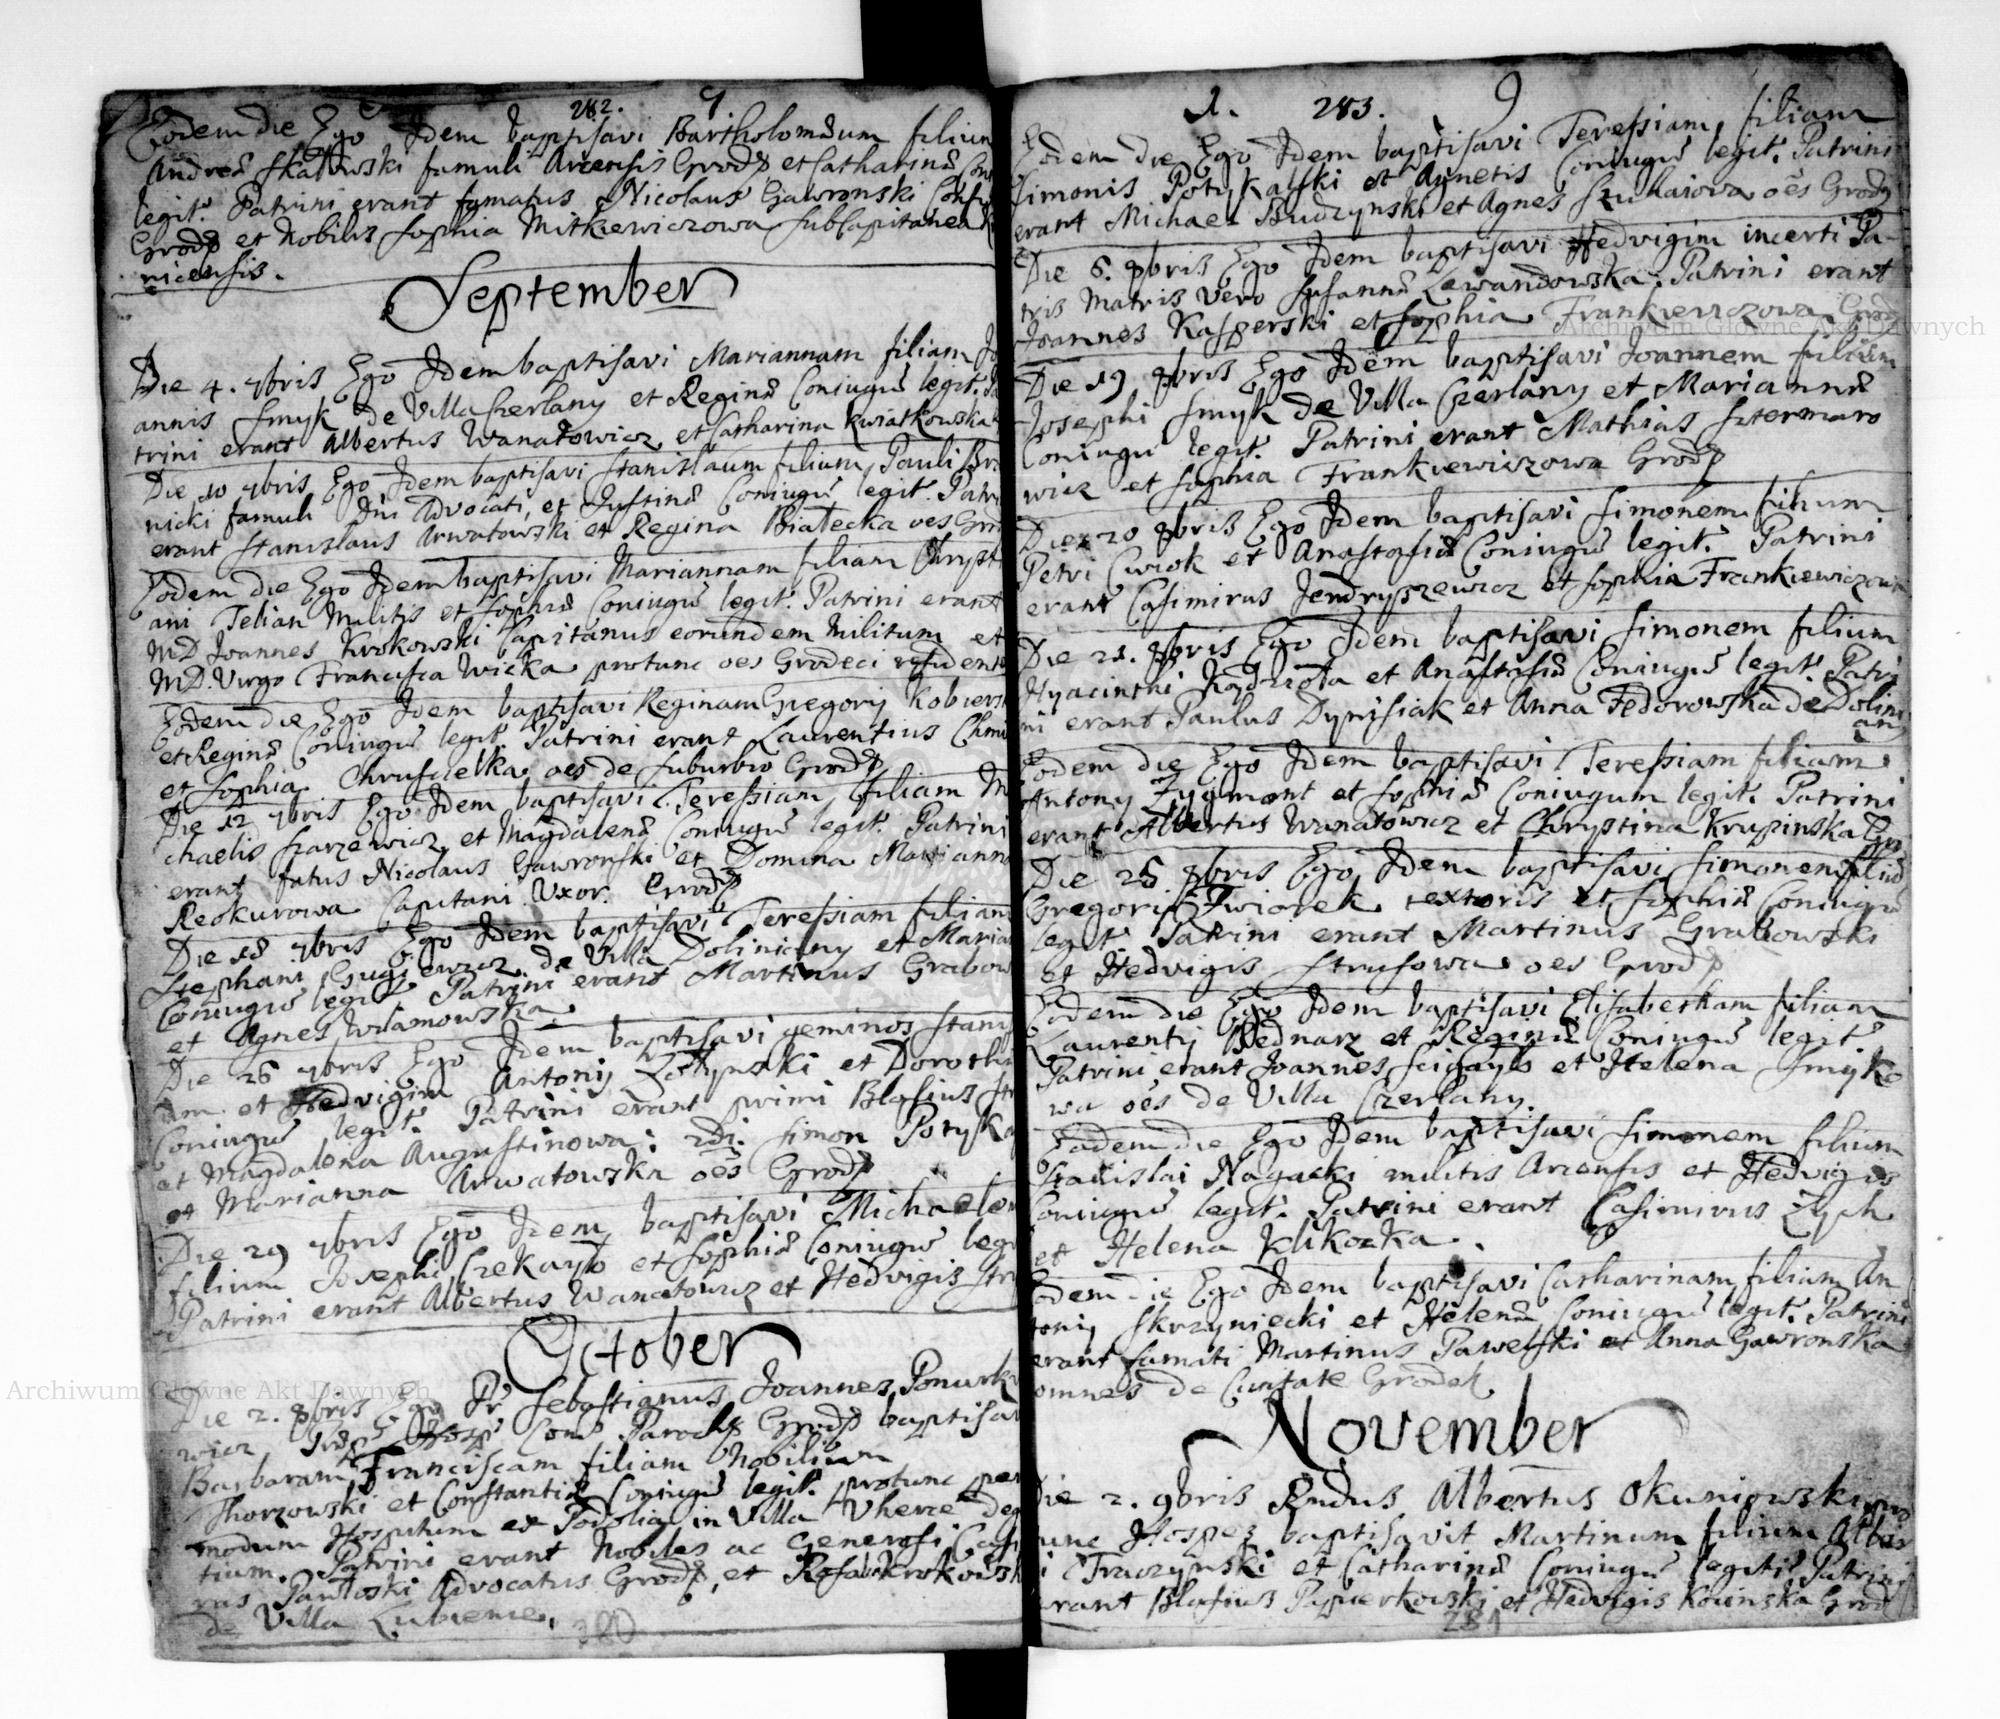 282. 9
Eodem die Ego Idem baptisavi Bartholomæum filium
Andreæ Skałowski famuli Arcensis Grod. et Catharinæ Con
legit. Patrini erant famatus Nicolaus Gawronski Consul
Grod. et Nobilis Sophia Mitkiewiczowa SubCapitanea
nicensis.
September
Die 4. 7bris Ego Idem baptisavi Mariannam filiam Jo
annis Smyk de Villa Czerlany et Reginæ Coniugũ legit. Pa
trini erant Albertus Wanatowicz et Catharina Kwiatkowska
Die 10 7bris Ego Idem baptisavi Stanislaum filium Pauli Bro
nicki famuli Dni Advocati, et Justinæ Coniugũ legit. Patri
erant Stanislaus Arwatowski et Regina Białecka oes Grod
Eodem die Ego Idem baptisavi Mariannam filiam Chryst
ani Telian Militis et Sophiæ Coniugũ legit. Patrini erant
MD Joannes Krokowski Capitanus eorundem Militum et
MD. Virgo Francisca Wicka protunc oes Grodeci residentes
Eodem die Ego Idem baptisavi Reginam Gregorij Kobiers
et Reginæ Coniugũ legit. Patrini erant Laurentius Chmi
et Sophia Chruscielka oes de Suburbio Grod
Die 12 7bris Ego Idem baptisavi Teressiam filiam Mi
chaelis Szarzewicz et Magdalenæ Coniugũ legit. Patrini
erant fatus Nicolaus Gawronski et Domina Marianna
Reokurowa Capitani Uxor. Grod
Die 18 7bris Ego Idem baptisavi Teressiam filiam
Stephani Gugiewicz de Villa Doliniany et Marian
Coniugũ legit. Patrini erant Martinus Grabow
et Agnes Wilamowska.
Die 26 7bris Ego Idem baptisavi geminos Stanis
um et Hedvigim Antonij Zołtynski et Dorothe
Coniugũ legit. Patrini erant primi Blasius Str
et Magdalena Augustinowa: 2di. Simon Potyka
et Marianna Arwatowska oẽs Grod
Die 29 7bris Ego Idem baptisavi Michaelem
filium Josephi Czekayło et Sophiæ Coniugũ legit
Patrini erant Albertus Wanatowicz et Hedvigis Str
October
Die 2. 8bris Ego Pr Sebastianus Joannes Ponurk
wicz Com Paroch Grod baptisav
Barbaram Franciscam filiam Nobilium
Thorzowski et Constantiæ Coniugũ legit. protunc per
modum Hospitum ex Podolia in Villa Uherce deg
tium. Patrini erant Nobiles ac Generosi Casi
rus Pawłoski Advocatus Grod, et Rosa Krokowsk
de Villa Lubienie.
380
1. 283. 9
Eodem die Ego Idem baptisavi Teressiam filiam
Simonis Potykalski et Agnetis Coniugũ legit. Patrini
erant Michael Budzynski et Agnes Szukaiowa oẽs Grod
Die 6. 8bris Ego Idem baptisavi Hedvigim incerti Pa
tris Matris vero Susannæ Lewandowska. Patrini erant
Joannes Kasperski et Sophia Frankiewiczowa Grod
Die 19 8bris Ego Idem baptisavi Joannem filium
Josephi Smyk de Villa Czerlany et Mariannæ
Coniugũ legit. Patrini erant Mathias Sztermaro
wicz et Sophia Frankiewiczowa Grod
Die 20 8bris Ego Idem baptisavi Simonem filium
Petri Cwiok et Anastasiæ Coniugũ legit. Patrini
erant Casimirus Jendryszewicz et Sophia Frankiewiczow
Die 21. 8bris Ego Idem baptisavi Simonem filium
Hyacinthi Kądzioła et Anastasiæ Coniugũ legit. Patri
ni erant Paulus Dynisiak et Anna Fedorowska de Dolini
any
Eodem die Ego Idem baptisavi Teressiam filiam
Antony Zygmont et Sophiæ Coniugum legit. Patrini
erant Albertus Wanatowicz et Chrystina Krupinska Gro
Die 26 8bris Ego Idem baptisavi Simonem filiũ
Gregorij Zwiorek textoris et Sophiæ Coniugũ
legit. Patrini erant Martinus Grabowski
et Hedvigis Strusowa oes Grod
Eodem die Ego Idem baptisavi Elisabetham filiam
Laurentij Bednarz et Reginæ Coniugũ legit.
Patrini erant Joannes Scigayło et Helena Smyko
wa oẽs de Villa Czerlany.
Eadem die Ego Idem baptisavi Simonem filium
Stanislai Nagacki militis Arcensis et Hedvigis
Coniugũ legit. Patrini erant Casimirus Zych
et Helena Klikocka.
Eodem die Ego Idem baptisavi Catharinam filiam An
tonij Skrzyniecki et Helenæ Coniugũ legit. Patrini
erant famati Martinus Pawelski et Anna Gawronska
omnes de Civitate Grodek
November
Die 2. 9bris Rndus Albertus Okuniewski pro
tunc Hospez baptisavit Martinum filium Alber
ti Traczynski et Catharinæ Coniugũ legiti. Patrini
erant Blasius Papierkowski et Hedvigis Kowinska Grod
281
Archiwum Główne Akt Dawnych
Archiwum Główne Akt Dawnych